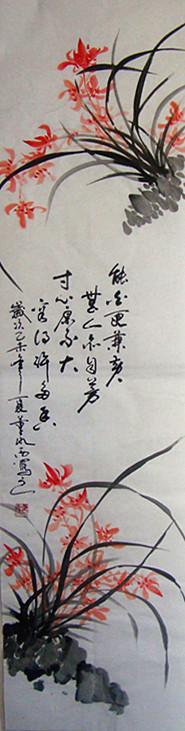 能白更兼黄
無人亦自芳
寸心原不大
容得許多香
歲次乙未年夏董寫之